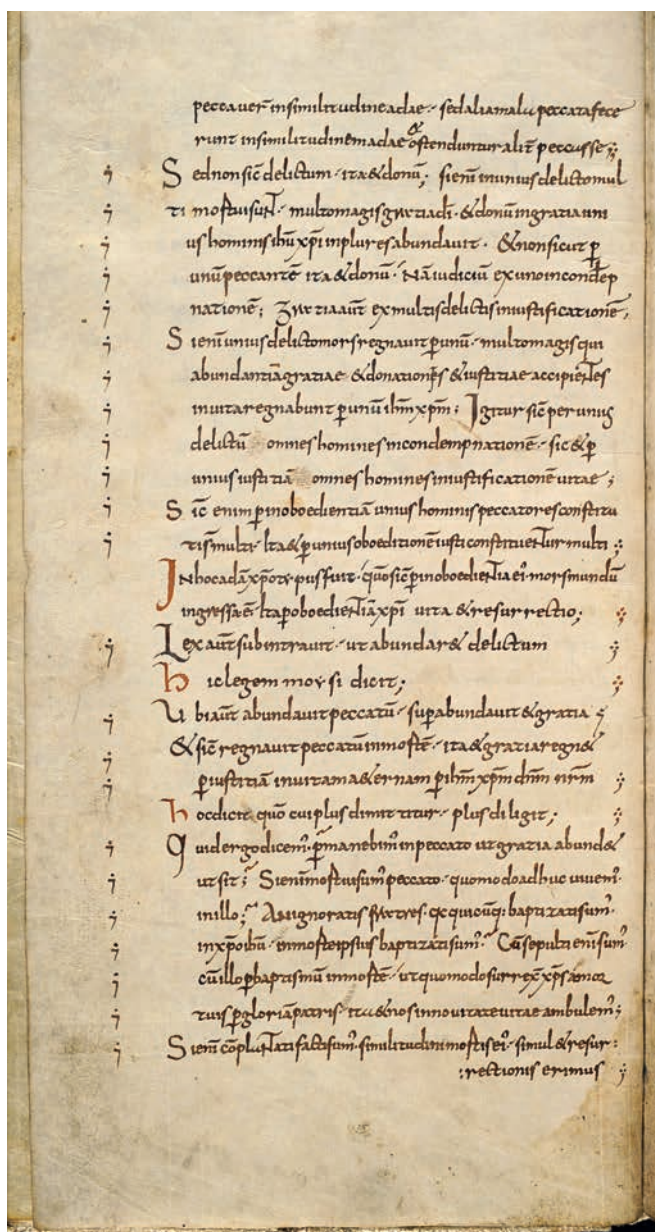 peccaver̄ in similitudine adae · sed alia mala peccata fece
runt in similitudinem adae & ostenduntur alit̄ peccasse ;
Sed non sic̄ delictum · ita & donū ; si enī in unius delicto mul
ti mortui sunt · multo magis gratia dī · & donū in gratia uni
us hominis ihū xpī in plures abundavit · & non sicut p̄
unū peccantē ita & donū · Nā iudiciū ex uno in condēp
nationē ; gratia aut̄ ex multis delictis in iustificationē ;
Si enī unius delicto mors regnavit p̄ unū · multo magis qui
abundantiā gratiae & donationes & iustitiae accipientes
in vita regnabunt p̄ unū ihm̄ xpm̄ ; Igitur sic̄ per unius
delictū omnes homines in condempnationē · sic & p̄
unius iustitiā omnes homines in iustificationē vitae ;
Sic̄ enim p̄ inoboedientiā unius hominis peccatores constitu
ti sm̄ multi · Ita & p̄ unius oboeditionē iusti constituentur multi ;
IN hoc adā xpō typus fuit · quō sic̄ p̄ inoboedientia ei' mors mundū
ingressa ē · Ita p̄ oboedientiā xpī vita & resurrectio ;
Lex aut̄ subintravit · ut abundar& delictum
hic legem moysi dicit ;
Ubi aut̄ abundavit peccatū · sup̄abundavit & gratia ;
& sic̄ regnavit peccatū in mortē · ita & gratia regn&
p̄ iustitiā in vitam a&ernam p̄ ihm̄ xpm̄ dnm̄ nrm̄
hoc dicit quō cui plus dimittitur · plus diligit ;
Quid ergo dicem' · p̄manebim' in peccato ut gratia abund&
ut sit ; Si enī mortui sum' peccato · quomodo adhuc vivem'
in illo ; An ignoratis fratres · q̄ quicūq; baptizati sum'
in xpō ihū · in morte ipsius baptizati sum' · Cū sepulti enī sum'
cū illo p̄ baptismū in mortē · ut quomodo surrex̄ xp̄s a mor
tuis p̄ gloriā patris · ita & nos in novitate vitae ambulem' ;
Si enī cōplantati facti sum' similitudini mortis ei' · simul & resur:
:rectionis erimus ;